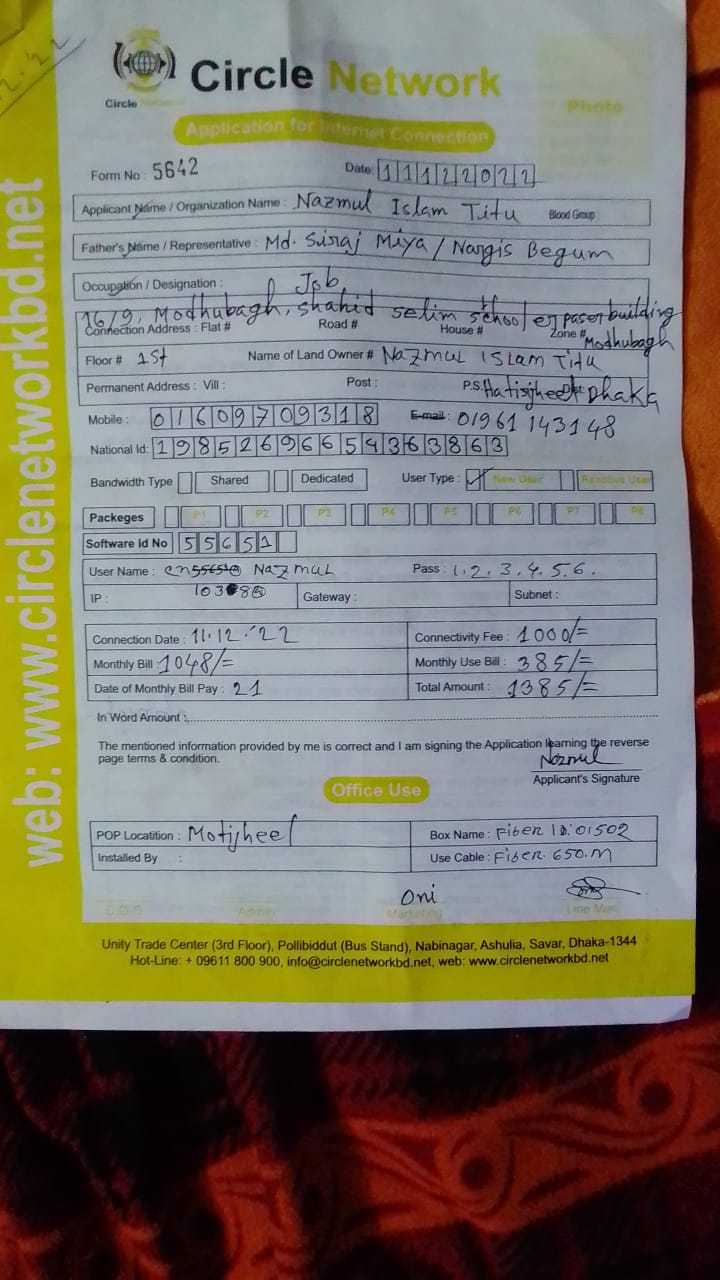 2.'22
Circle Network
Circle Network
Application for Internet Connection
Photo
Form No : 5642 Date: 11122022
Applicant Name / Organization Name : Nazmul Islam Titu Blood Group :
Father's Name / Representative : Md. Siraj Miya / Nargis Begum
Occupation / Designation : Job
16/9, Modhubagh, shahid selim school er paser building
Connection Address : Flat # Road # House # Zone # Modhubagh
Floor # 1st Name of Land Owner # Nazmul Islam Titu
Permanent Address : Vill : Post : P.S. Hatirjheel Dist: Dhaka
Mobile : 01609709318 E-mail : 01961143148
National Id: 19852696654363863
Bandwidth Type Shared Dedicated User Type : New User Reactive User
Packeges P1 P2 P3 P4 P5 P6 P7 P8
Software Id No 55651
User Name : Nazmul Pass : 1.2.3.4.5.6.
IP : Gateway : Subnet :
Connection Date : 11.12.'22 Connectivity Fee : 1000/=
Monthly Bill : 1048/= Monthly Use Bill : 385/=
Date of Monthly Bill Pay : 21 Total Amount : 1385/=
In Word Amount :
The mentioned information provided by me is correct and I am signing the Application learning the reverse
page terms & condition.
Nazmul
Applicant's Signature
Office Use
POP Locatition : Motijheel Box Name : Fiber ID: 01502
Installed By : Use Cable : Fiber. 650.M
Oni
Admin Marketing Line Man
Unity Trade Center (3rd Floor), Pollibiddut (Bus Stand), Nabinagar, Ashulia, Savar, Dhaka-1344
Hot-Line: + 09611 800 900, info@circlenetworkbd.net, web: www.circlenetworkbd.net
web: www.circlenetworkbd.net